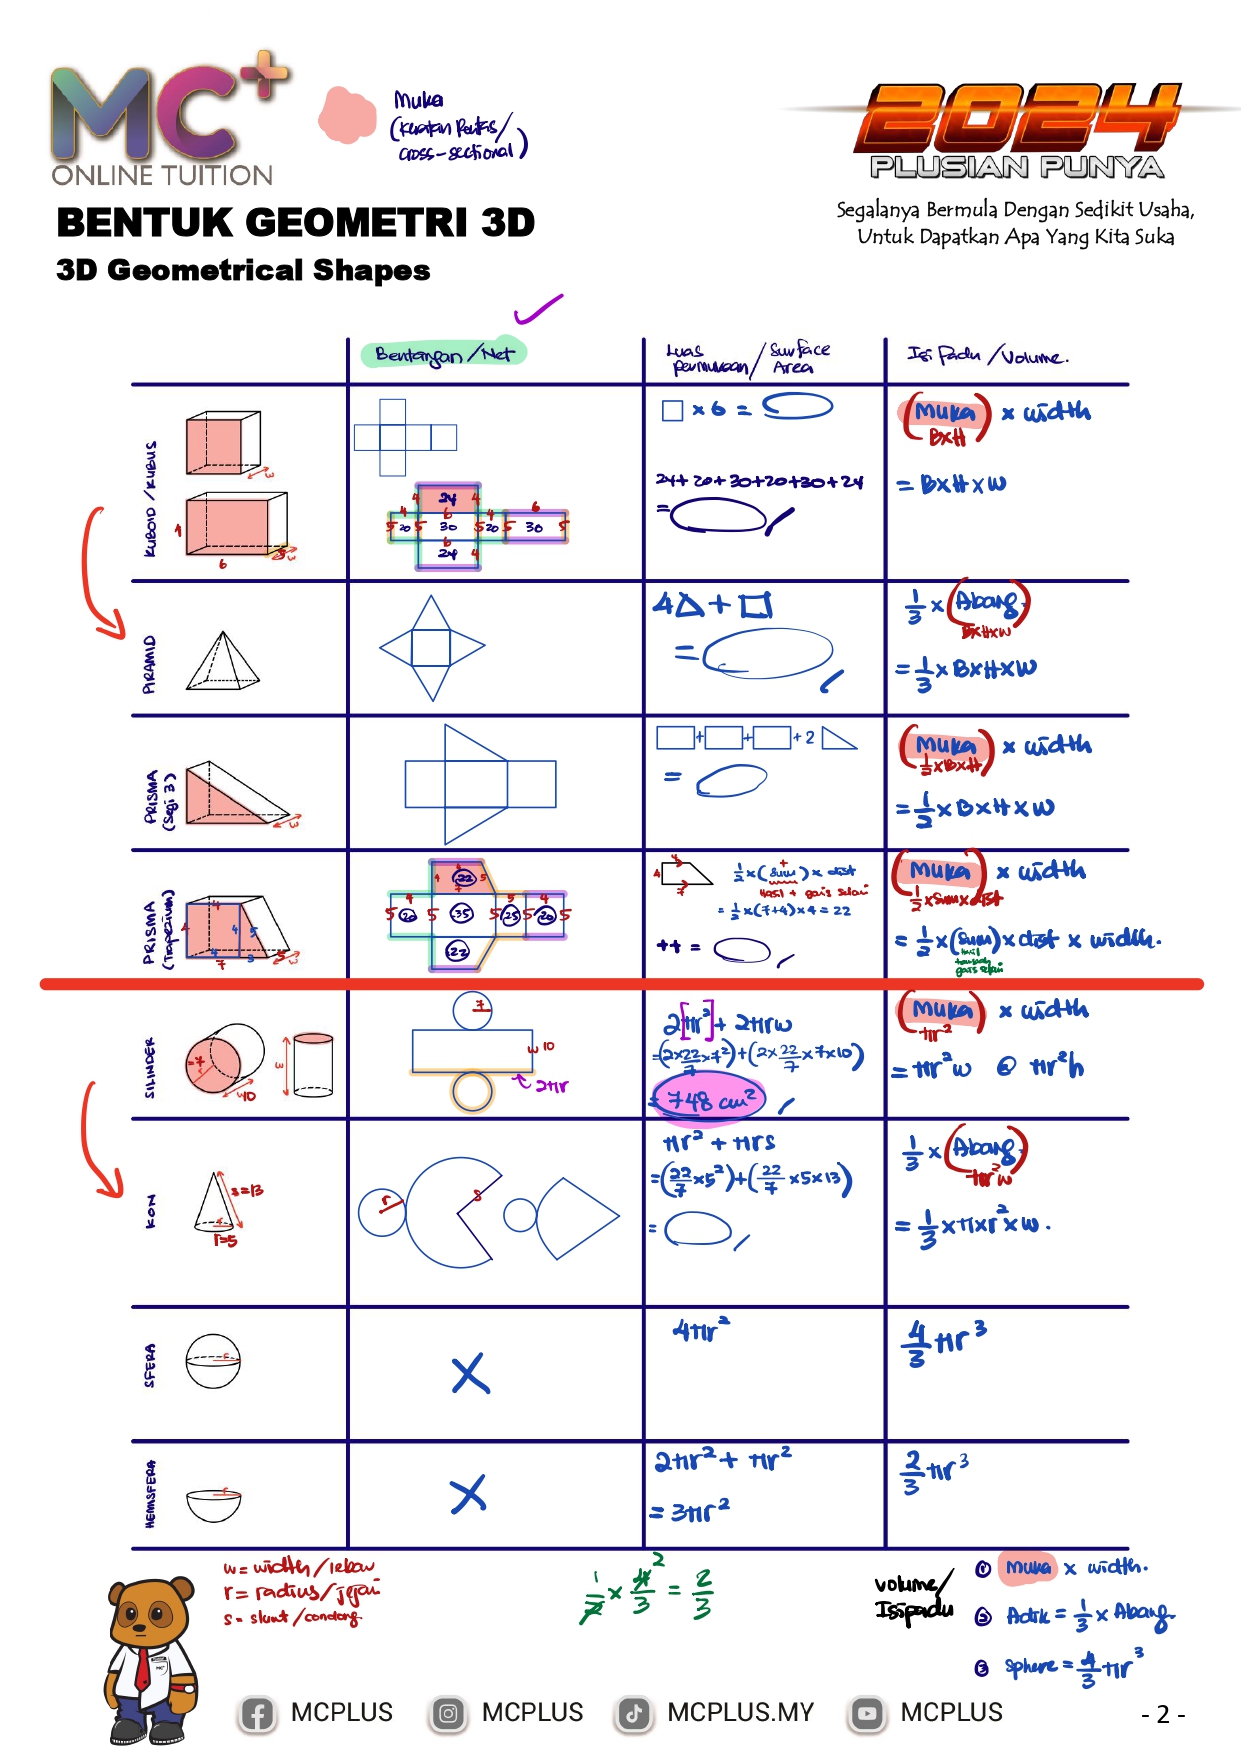 MC+
ONLINE TUITION
Muka
(Keratan Rentas/
cross-sectional)
2024
PLUSIAN PUNYA
Segalanya Bermula Dengan Sedikit Usaha,
Untuk Dapatkan Apa Yang Kita Suka
BENTUK GEOMETRI 3D
3D Geometrical Shapes
Bentangan/Net
Luas permukaan/Surface Area
Isi Padu/Volume.
KUBOID/KUBUS
w
4
6
5
w
4 24 4
4 6 4 6
5 20 5 30 5 20 5 30 5
6
24 4
□ x 6 =
24+20+30+20+30+24
=
(Muka) x width
BxH
= BxHxW
PIRAMID
4△+□
=
1/3 x (Abang)
BxHxW
= 1/3 x BxHxW
PRISMA
(Segi 3)
w
□+□+□+2
=
(Muka) x width
1/2xBxH
= 1/2 x B x H x W
PRISMA
(Trapezium)
4
4 4 5
4 3 5
7 w
4
4 22 5
7
4 5 4
5 20 5 35 5 25 5 20 5
22
4
4
7
1/2 x (sum) x dist
Hasil + garis selari
= 1/2 x (7+4) x 4 = 22
++ =
(Muka) x width
1/2xSumxdist
= 1/2 x (sum) x dist x width.
hasil
tambah
garis selari
SILINDER
=7
r
w 10
w
7
w 10
2πr
2[πr²] + 2πrw
=(2x22/7x7²)+(2x22/7x7x10)
= 748 cm²
(Muka) x width
πr²
= πr²w @ πr²h
KON
s=13
r
r=5
r
s
πr² + πrs
=(22/7x5²)+(22/7x5x13)
=
1/3 x (Abang)
πr²w
= 1/3 x π x r² x w.
SFERA
r
X
4πr²
4/3 πr³
HEMISFERA
r
X
2πr² + πr²
= 3πr²
2/3 πr³
w = width/lebar
r = radius/jejari
s = slant/condong
1/2 x 4/3 = 2/3
2
volume/
Isipadu
① Muka x width.
② Adik = 1/3 x Abang
③ sphere = 4/3 πr³
MC+
MCPLUS
MCPLUS
MCPLUS.MY
MCPLUS
- 2 -